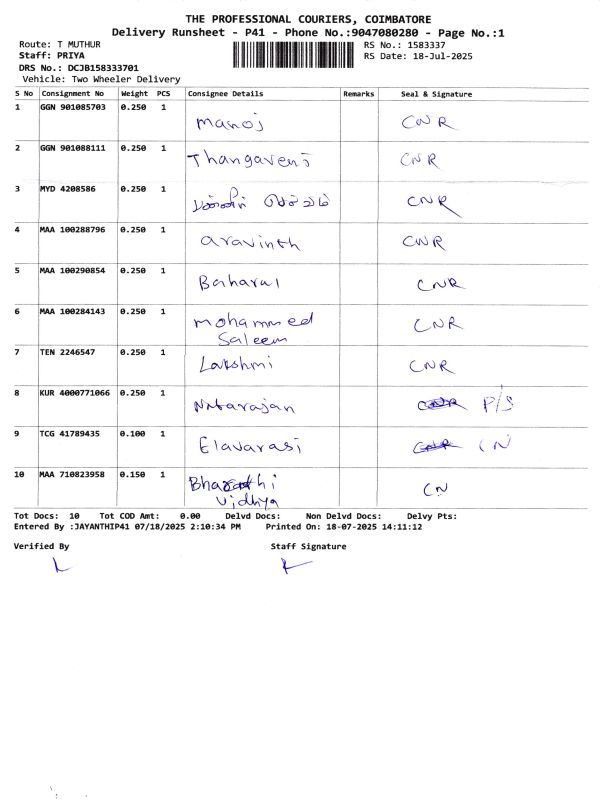 THE PROFESSIONAL COURIERS, COIMBATORE
Delivery Runsheet - P41 - Phone No.:9047080280 - Page No.:1
Route: T MUTHUR RS No.: 1583337
Staff: PRIYA RS Date: 18-Jul-2025
DRS No.: DCJB158333701
Vehicle: Two Wheeler Delivery
S No Consignment No Weight PCS Consignee Details Remarks Seal & Signature
1 GGN 901085703 0.250 1 Manoj CNR
2 GGN 901088111 0.250 1 Thangaveni CNR
3 MYD 4208586 0.250 1 CNR
4 MAA 100288796 0.250 1 aravinth CNR
5 MAA 100290854 0.250 1 CNR
6 MAA 100284143 0.250 1 Mohammed CNR
Saleem
7 TEN 2246547 0.250 1 Lakshmi CNR
8 KUR 4000771066 0.250 1 Natarajan P/S
9 TCG 41789435 0.100 1 Elavarasi CN
10 MAA 710823958 0.150 1 Bharathi CN
Vidhya
Tot Docs: 10 Tot COD Amt: 0.00 Delvd Docs: Non Delvd Docs: Delvy Pts:
Entered By :JAYANTHIP41 07/18/2025 2:10:34 PM Printed On: 18-07-2025 14:11:12
Verified By Staff Signature